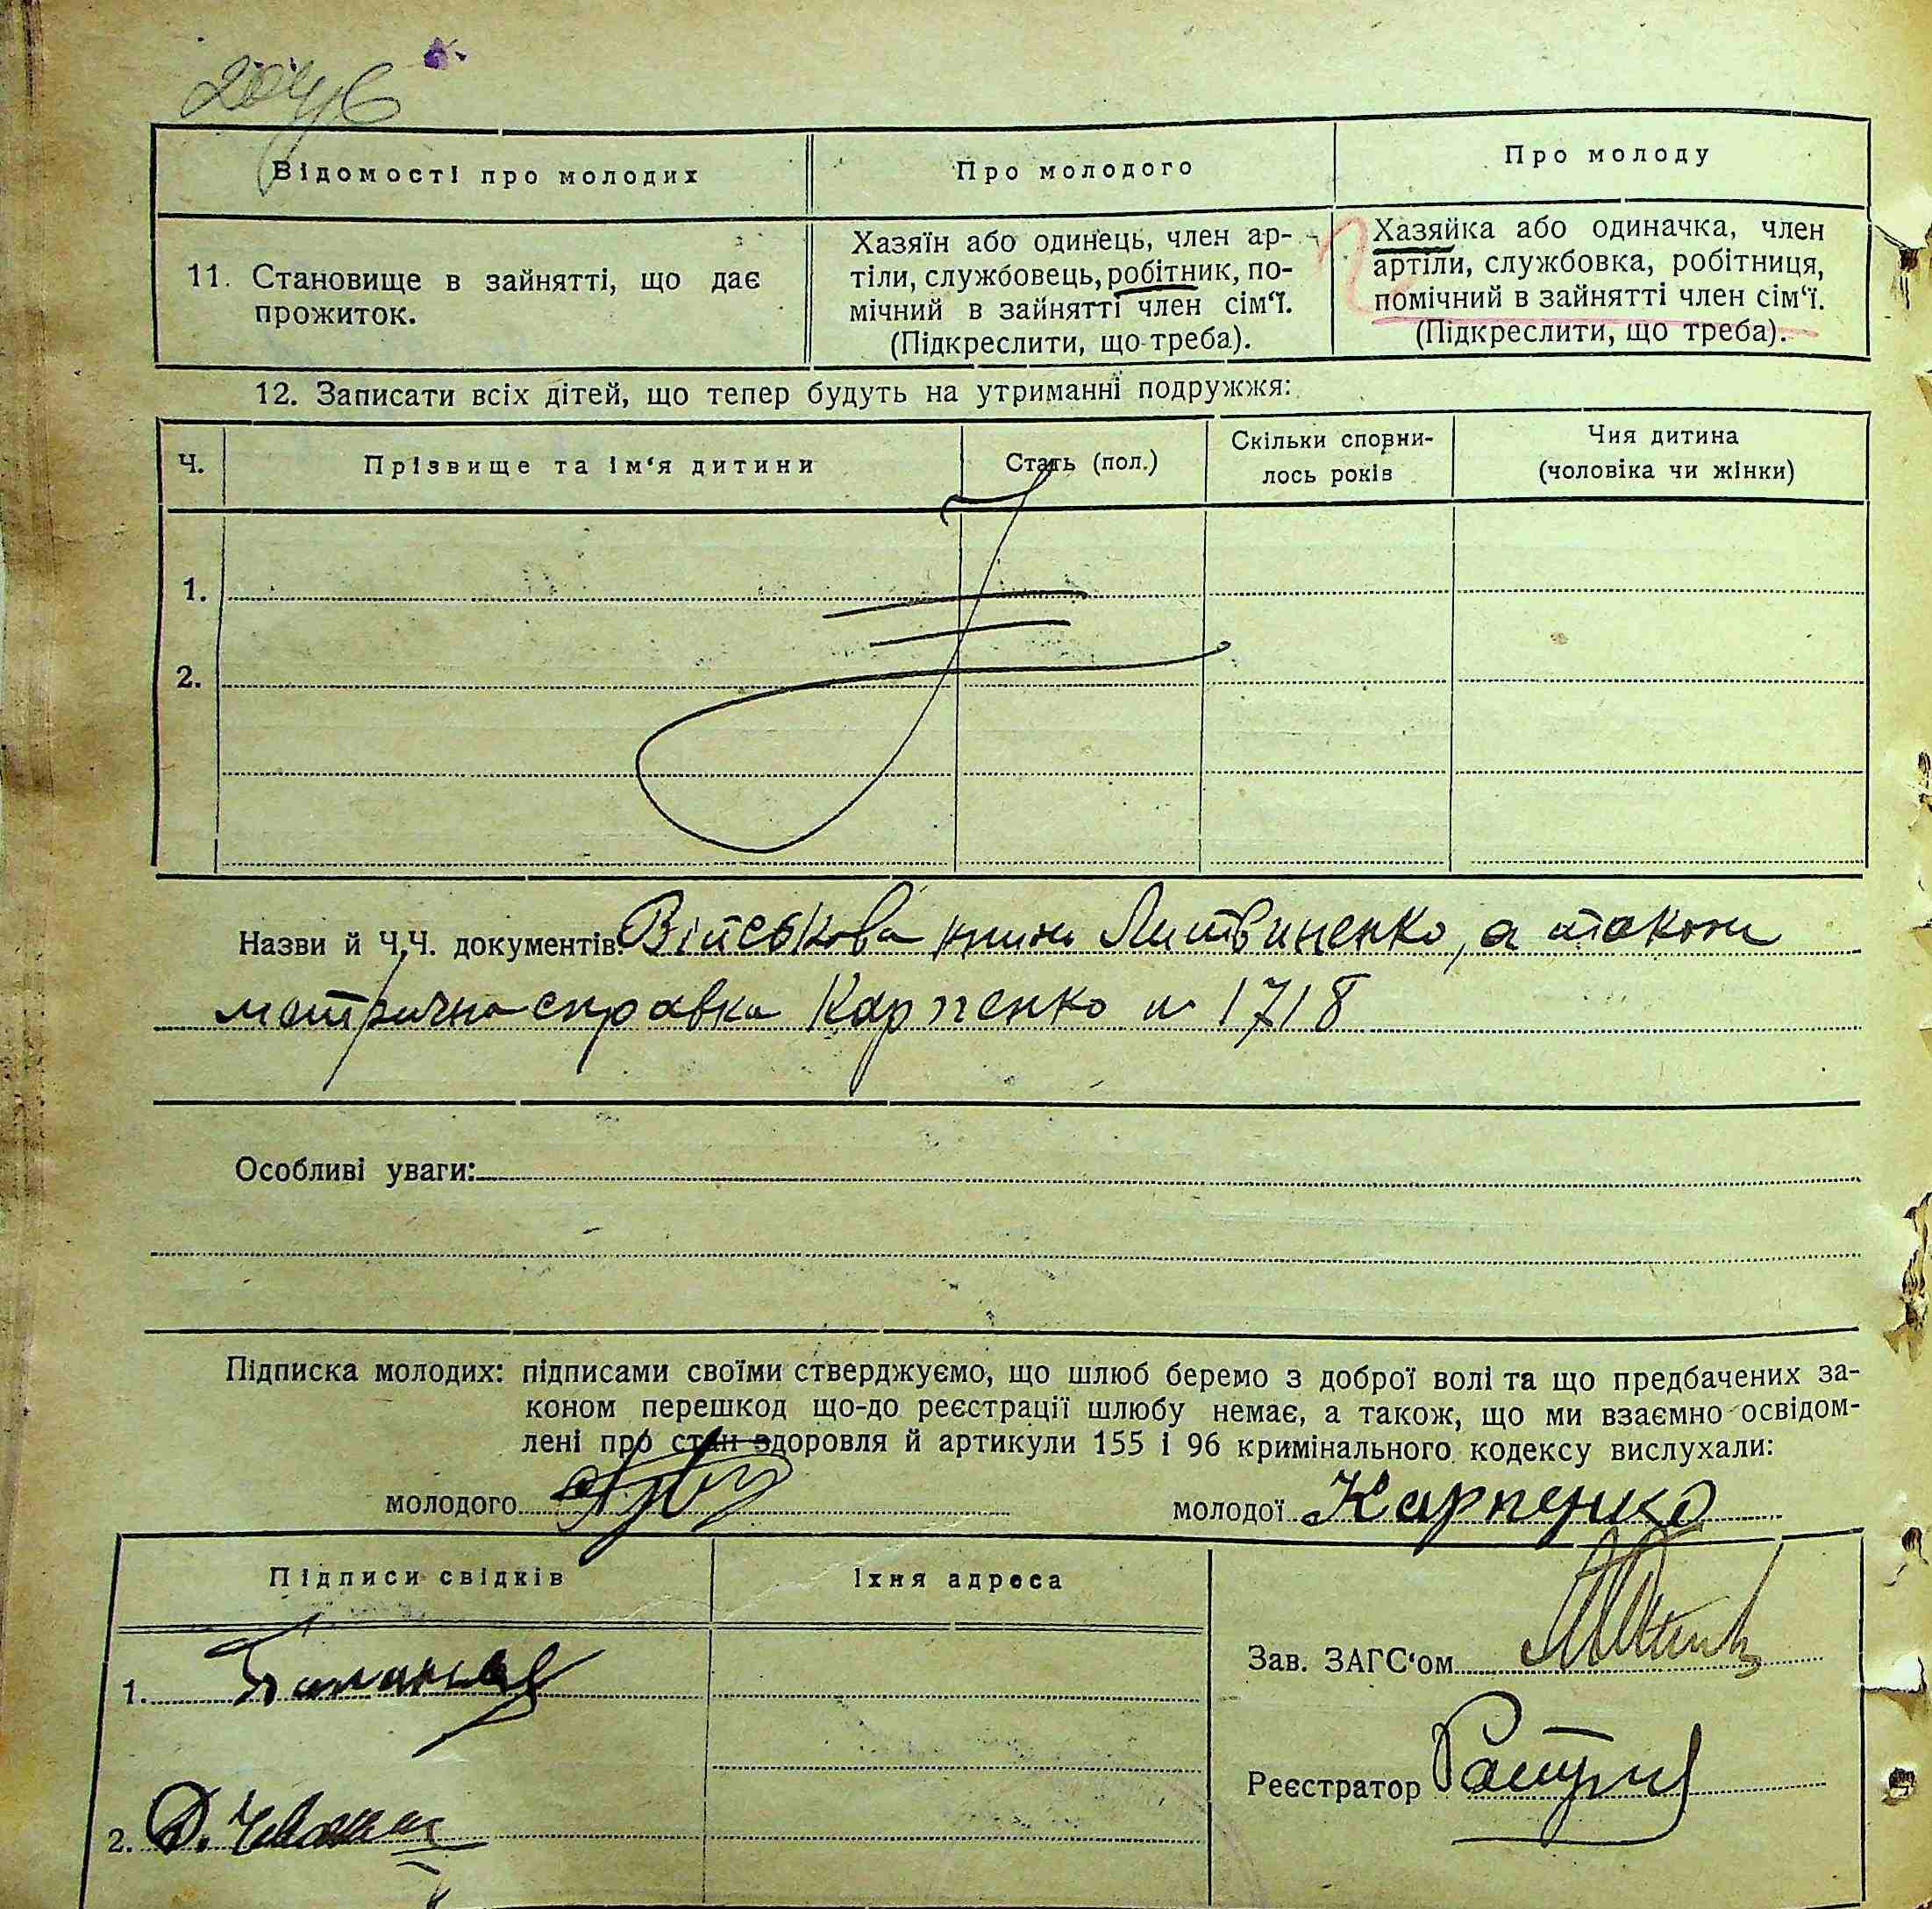 Відомості про молодих
Про молодого
Про молоду
11. Становище в зайнятті, що дає
прожиток.
Хазяїн або одинець, член ар-
тіли, службовець, робітник, по-
мічний в зайнятті член сім‘ї.
(Підкреслити, що треба).
Хазяйка або одиначка, член
артіли, службовка, робітниця,
помічний в зайнятті член сім‘ї.
(Підкреслити, що треба).
12. Записати всіх дітей, що тепер будуть на утриманні подружжя:
Ч.
Прізвище та ім‘я дитини
Стать (пол.)
Скільки сповни-
лось років
Чия дитина
(чоловіка чи жінки)
1.
2.
Назви й Ч.Ч. документів: Військова Литвиненко, а також
метрична справка Карпенко № 1718
Особливі уваги:
Підписка молодих: підписами своїми стверджуємо, що шлюб беремо з доброї волі та що предбачених за-
коном перешкод що-до реєстрації шлюбу немає, а також, що ми взаємно освідом-
лені про стан здоровля й артикули 155 і 96 кримінального кодексу вислухали:
молодого
молодої Карпенко
Підписи свідків
Їхня адреса
1.
2. Д.
Зав. ЗАГС‘ом
Реєстратор